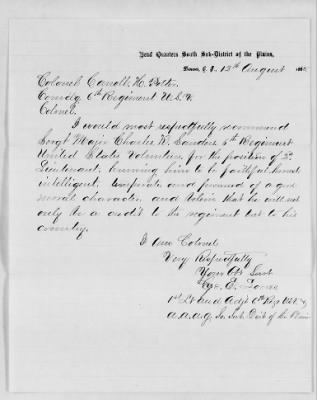 Head Quarters South Sub-District of the Plains,
Denver, C. T., 13th August 186
Colonel Carroll H. Potter
Comdg 6th Regiment U.S.V.
Colonel.
I would most respectfully recommend
Sergt Major Charles R. Sanders 6th Regiment
United States Volunteers, for the position of 2d
Lieutenant, knowing him to be faithful, honest
intelligent, temperate and possessed of a good
moral character, and believe that he will not
only be a credit to the regiment but to his
country.
I am Colonel
Very Respectfully
Your Obt Servt
Geo. E.
1st Lt and Adjt 6th Regt U.S.V. &
a.a.a.g. So. Sub. Dist of the Plains